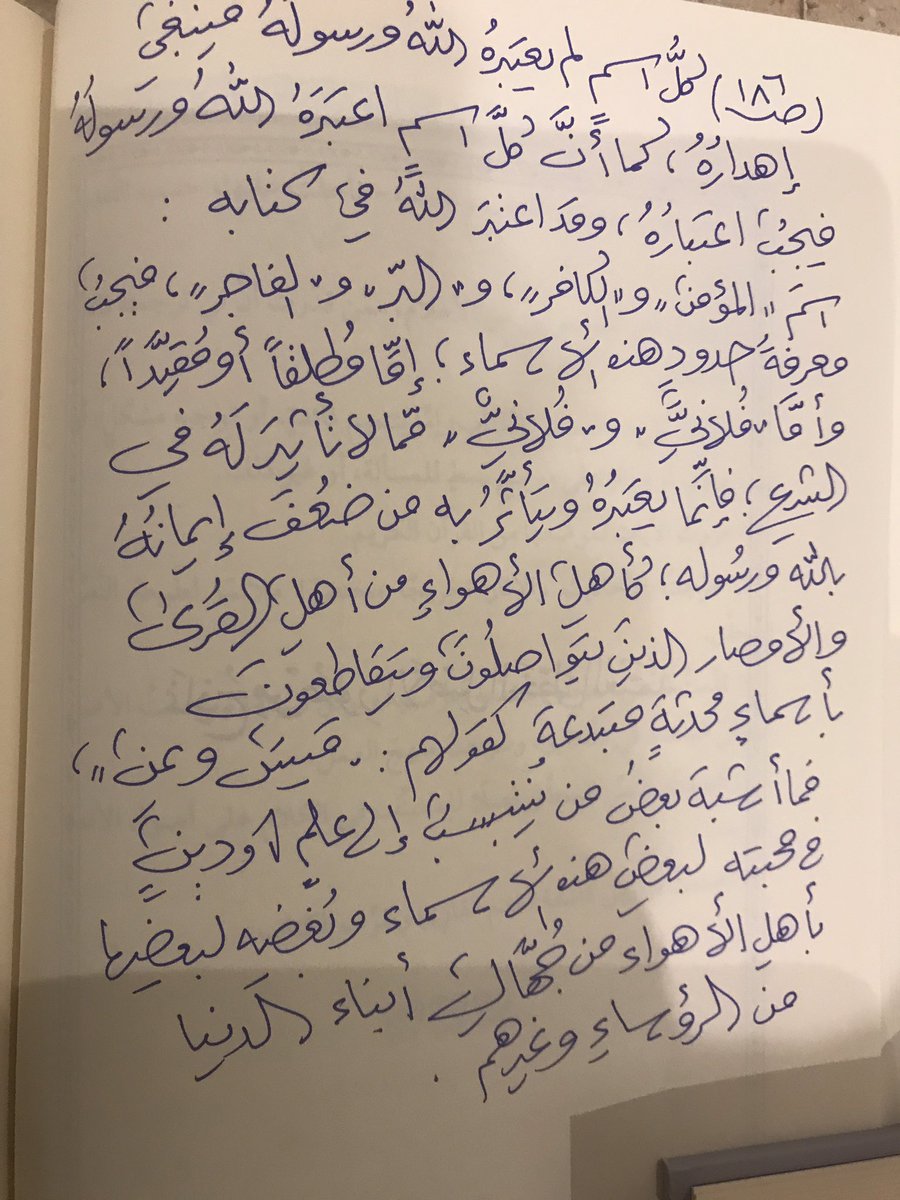 (ص١٨٦) كلُّ اسم لم يعتبرهُ اللهُ ورسولهُ فينبغي
إهدارُهُ، كما أنَّ كلَّ اسمٍ اعتبَرَهُ اللهُ ورَسولُهُ
فيجبُ اعتبَارُهُ، وقد اعتبَرَ اللهُ في كتابه :
اسمَ "المؤمن" و"الكافر"، و"البرّ" و"الفاجر"، فيجبُ
معرفةُ حدودِ هذه الأسماء؛ إمَّا مُطلقاً أو مُقيَّداً،
وأمَّا "فُلانيٌّ" و"فُلانيٌّ" ممّا لا تأثيرَ لَهُ في
الشرع؛ فإنَّما يعتبرُهُ ويتأثَّرُ به من ضعُفَ إيمانُهُ
بالله ورسُوله؛ كأهلِ الأهواءِ من أهلِ القُرَىٰ
والأمصار الذين يتواصلُونَ ويتقاطعونَ
بأسماءٍ محدثةٍ مبتدعةٍ كقولهم : "قيس ويمن"،
فما أشبهَ بعضُ من يُنتسبُ إلى علمٍ أو دينٍ
في محبته لبعضِ هذه الأسماء وبُغضِه لبعضِها
بأهلِ الأهواء من جُهَّالِ أبناء الدنيا
من الرؤساءِ وغيرهم .